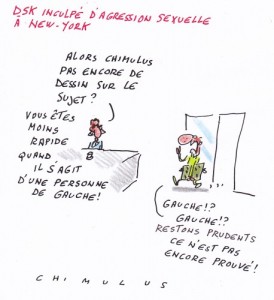 DSK INCULPÉ D'AGRESSION SEXUELLE
À NEW-YORK
ALORS CHIMULUS
PAS ENCORE DE
DESSIN SUR LE
SUJET ?
VOUS ÊTES
MOINS
RAPIDE
QUAND
IL S'AGIT
D'UNE PERSONNE
DE GAUCHE!
GAUCHE!?
GAUCHE!?
RESTONS PRUDENTS
CE N'EST PAS
ENCORE PROUVÉ!
CHIMULUS